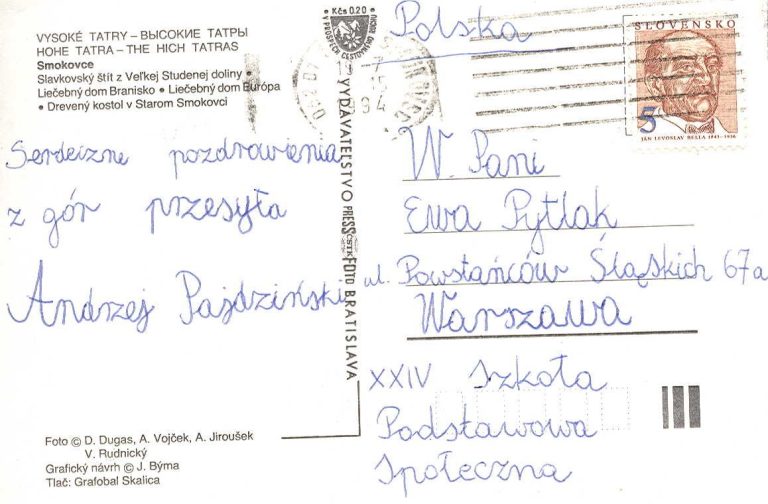 VYSOKÉ TATRY – ВЫСОКИЕ ТАТРЫ
HOHE TATRA – THE HIGH TATRAS
Smokovce
Slavkovský štít z Veľkej Studenej doliny •
Liečebný dom Branisko • Liečebný dom Európa
• Drevený kostol v Starom Smokovci
Serdeczne pozdrowienia
z gór przesyła
Andrzej Pajdziński
Foto © D. Dugas, A. Vojček, A. Jiroušek
V. Rudnický
Grafický návrh © J. Býma
Tlač: Grafobal Skalica
• Kčs 0.20 •
V PROSPECH CESTOVNÉHO RUCHU
VYDAVATEĽSTVO PRESSFOTO BRATISLAVA
ČSTK
Polska
SLOVENSKO
5
JÁN LEVOSLAV BELLA 1843–1936
W. Pani
Ewa Pytlak
ul. Powstańców Śląskich 67a
Warszawa
XXIV Szkoła
Podstawowa
Społeczna